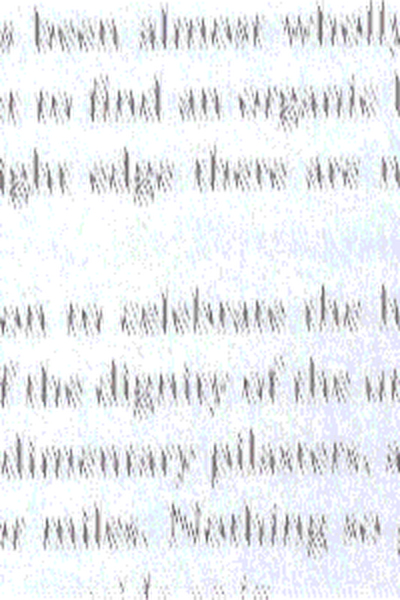 been almost wholly
to find an organic
edge there are
to celebrate the
the dignity of the
pilasters,
miles. Nothing so